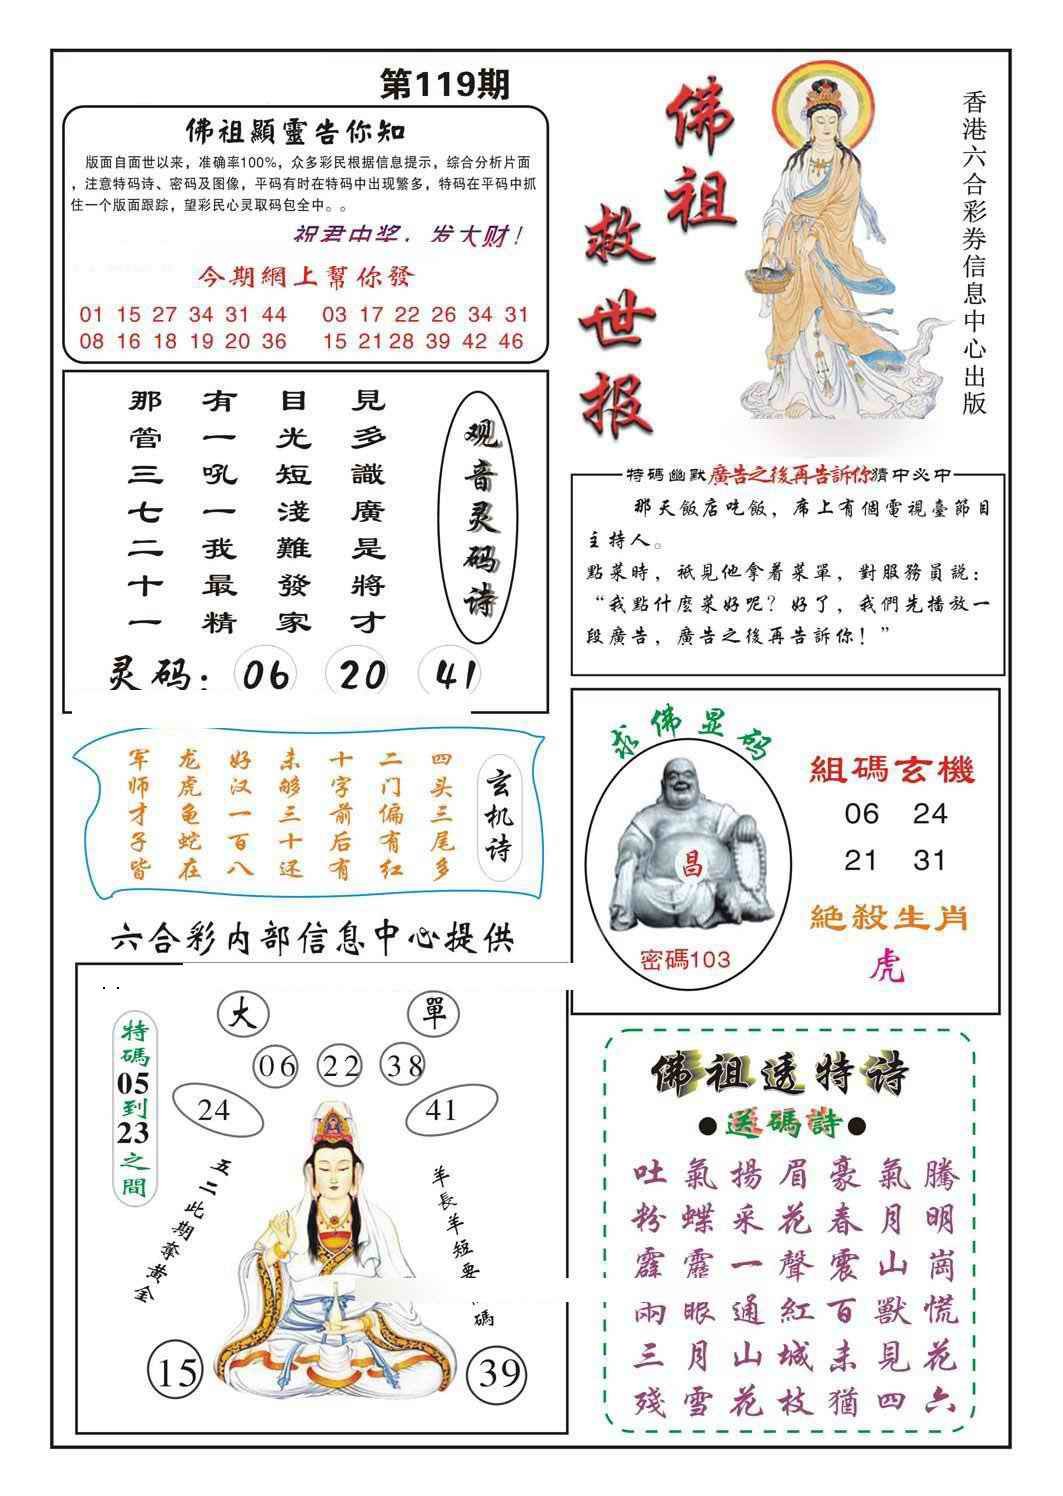 第119期
佛祖顯靈告你知
版面自面世以来，准确率100%，众多彩民根据信息提示，综合分析片面
，注意特码诗、密码及图像，平码有时在特码中出现繁多，特码在平码中抓
住一个版面跟踪，望彩民心灵取码包全中。。
祝君中奖，发大财！
今期網上幫你發
01 15 27 34 31 44 03 17 22 26 34 31
08 16 18 19 20 36 15 21 28 39 42 46
佛祖
救世报
香港六合彩券信息中心出版
观音灵码诗
見多識廣是將才
目光短淺難發家
有一吼一我最精
那管三七二十一
灵码：06 20 41
特碼幽默廣告之後再告訴你猜中必中
那天飯店吃飯，席上有個電視臺節目
主持人。
點菜時，衹見他拿着菜單，對服務員説：
“我點什麼菜好呢？好了，我們先播放一
段廣告，廣告之後再告訴你！”
玄机诗
四头三尾多
二门偏有红
十字前后有
未够三十还
好汉一百八
龙虎龟蛇在
军师才子皆
求佛显码
昌
密碼103
組碼玄機
06 24
21 31
絶殺生肖
虎
六合彩内部信息中心提供
特碼05到23之間
大 單
06 22 38
24 41
五二此期奪黄金
羊長羊短要
碼
15 39
佛祖透特诗
●送碼詩●
吐氣揚眉豪氣騰
粉蝶采花春月明
霹靂一聲震山崗
兩眼通紅百獸慌
三月山城未見花
殘雪花枝猶四六